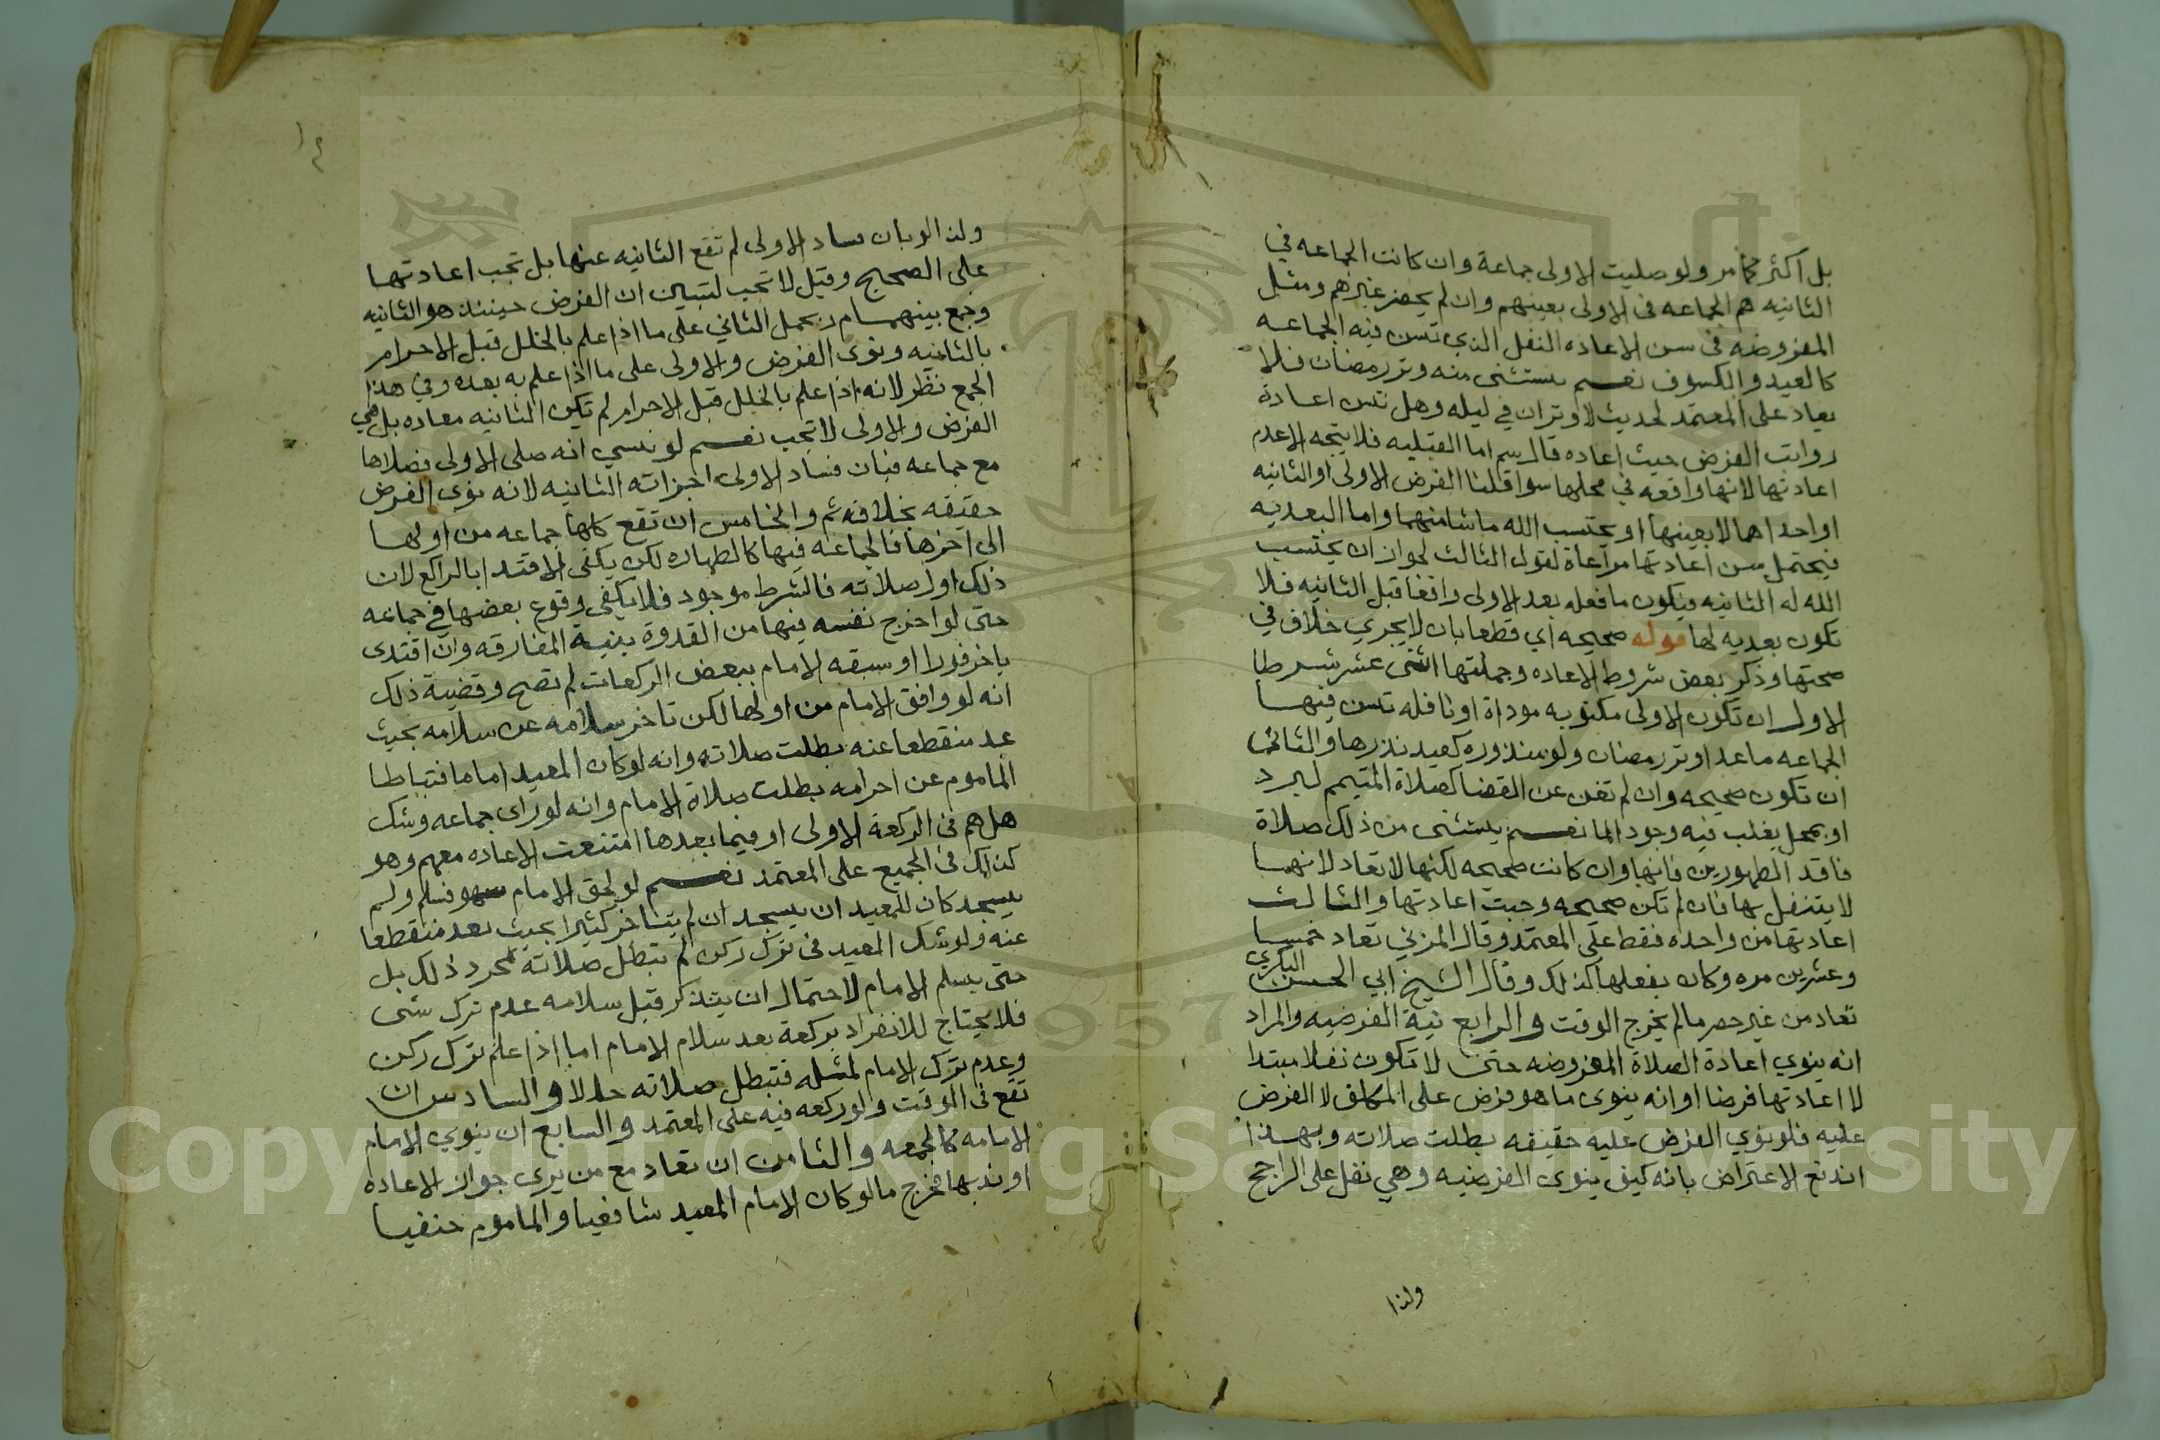 بل اكثر مما مر ولو صليت الاولى جماعة وان كانت الجماعه في
الثانيه هم الجماعه في الاولى بعينهم وان لم يحضر غيرهم ومثل
المفروضه في سن الاعاده النفل الذي تسن فيه الجماعه
كالعيد والكسوف نعم يستثنى منه وتر رمضان فلا
يعاد على المعتمد لحديث لا وتران في ليله وهل تسن اعادة
رواتب الفرض حيث اعاده قال سم اما القبليه فلا يتجه الاعدم
اعادتها لانها واقعه في محلها سوا قلنا الفرض الاولى او الثانيه
او احداهما لا بعينها او يحتسب الله ما شا منهما واما البعديه
فيحتمل سن اعادتها مراعاة لقول الثالث لجواز ان يحتسب
الله له الثانيه فيكون ما فعله بعد الاولى واقعا قبل الثانيه فلا
تكون بعديه لها قوله صحيحه اي قطعا بان لا يجري خلاف في
صحتها وذكر بعض شروط الاعاده وجملتها اثنى عشر شرطا
الاول ان تكون الاولى مكتوبه موداة او نافله تسن فيها
الجماعه ما عدا وتر رمضان ولو منذوره كعيد نذرها والثاني
ان تكون صحيحه وان لم تغن عن القضا كصلاة المتيمم لبرد
او بمحل يغلب فيه وجود الما نعم يستثنى من ذلك صلاة
فاقد الطهورين فانها وان كانت صحيحه لكنها لا تعاد لانها
لا يتنفل بها فان لم تكن صحيحه وجبت اعادتها والثالث
اعادتها من واحده فقط على المعتمد وقال المزني تعاد خمسا
وعشرين مره وكان يفعلها كذلك وقال الشيخ ابي الحسن البكري
تعاد من غير حصر ما لم يخرج الوقت والرابع نية الفرضيه والمراد
انه ينوي اعادة الصلاة المفروضه حتى لا تكون نفلا مبتدا
لا اعادتها فرضا او انه ينوى ما هو فرض على المكلف لا الفرض
عليه فلو نوي الفرض عليه حقيقه بطلت صلاته وبهذا
اندفع الاعتراض بانه كيف ينوى الفرضيه وهي نفل على الراجح
ولذا
١٤
ولذا لو بان فساد الاولى لم تقع الثانيه عنها بل تجب اعادتها
على الصحيح وقيل لا تجب لتبين ان الفرض حينئذ هو الثانيه
وجمع بينهما م ر بحمل الثاني على ما اذا علم بالخلل قبل الاحرام
بالثانيه ونوى الفرض والاولى على ما اذا علم به بعده وفي هذا
الجمع نظر لانه اذا علم بالخلل قبل الاحرام لم تكن الثانيه معاده بل هي
الفرض والاولى لا تجب نعم لو نسي انه صلى الاولى فصلاها
مع جماعه فبان فساد الاولى اجزاته الثانيه لانه نوى الفرض
حقيقه بخلافه ثم والخامس ان تقع كلها جماعه من اولها
الى اخرها فالجماعه فيها كالطهاره لكن يكفي الاقتدا بالراكع لان
ذلك اول صلاته فالشرط موجود فلا يكفي وقوع بعضها في جماعه
حتى لو اخرج نفسه فيها من القدوة بنية المفارقه وان اقتدى
باخر فورا او سبقه الامام ببعض الركعات لم تصح وقضية ذلك
انه لو وافق الامام من اولها لكن تاخر سلامه عن سلامه بحيث
عد منقطعا عنه بطلت صلاته وانه لو كان المعيد اماما فتباطا
الماموم عن احرامه بطلت صلاة الامام وانه لو راى جماعه وشك
هل هم في الركعة الاولى او فيما بعدها امتنعت الاعاده معهم وهو
كذلك في الجميع على المعتمد نعم لو لحق الامام سهو فسلم ولم
يسجد كان للمعيد ان يسجد ان لم يتاخر كثيرا بحيث يعد منقطعا
عنه ولو شك المعيد في ترك ركن لم تبطل صلاته بمجرد ذلك بل
حتى يسلم الامام لاحتمال ان يتذكر قبل سلامه عدم ترك شى
فلا يحتاج للانفراد بركعة بعد سلام الامام اما اذا علم ترك ركن
وعدم ترك الامام لمثله فتبطل صلاته حالا والسادس ان
تقع في الوقت ولو ركعه فيه على المعتمد والسابع ان ينوي الامام
الامامه كالجمعه والثامن ان تعاد مع من يرى جواز الاعاده
او ندبها فخرج ما لو كان الامام المعيد شافعيا والماموم حنفيا
Copyright © King Saud University
1957